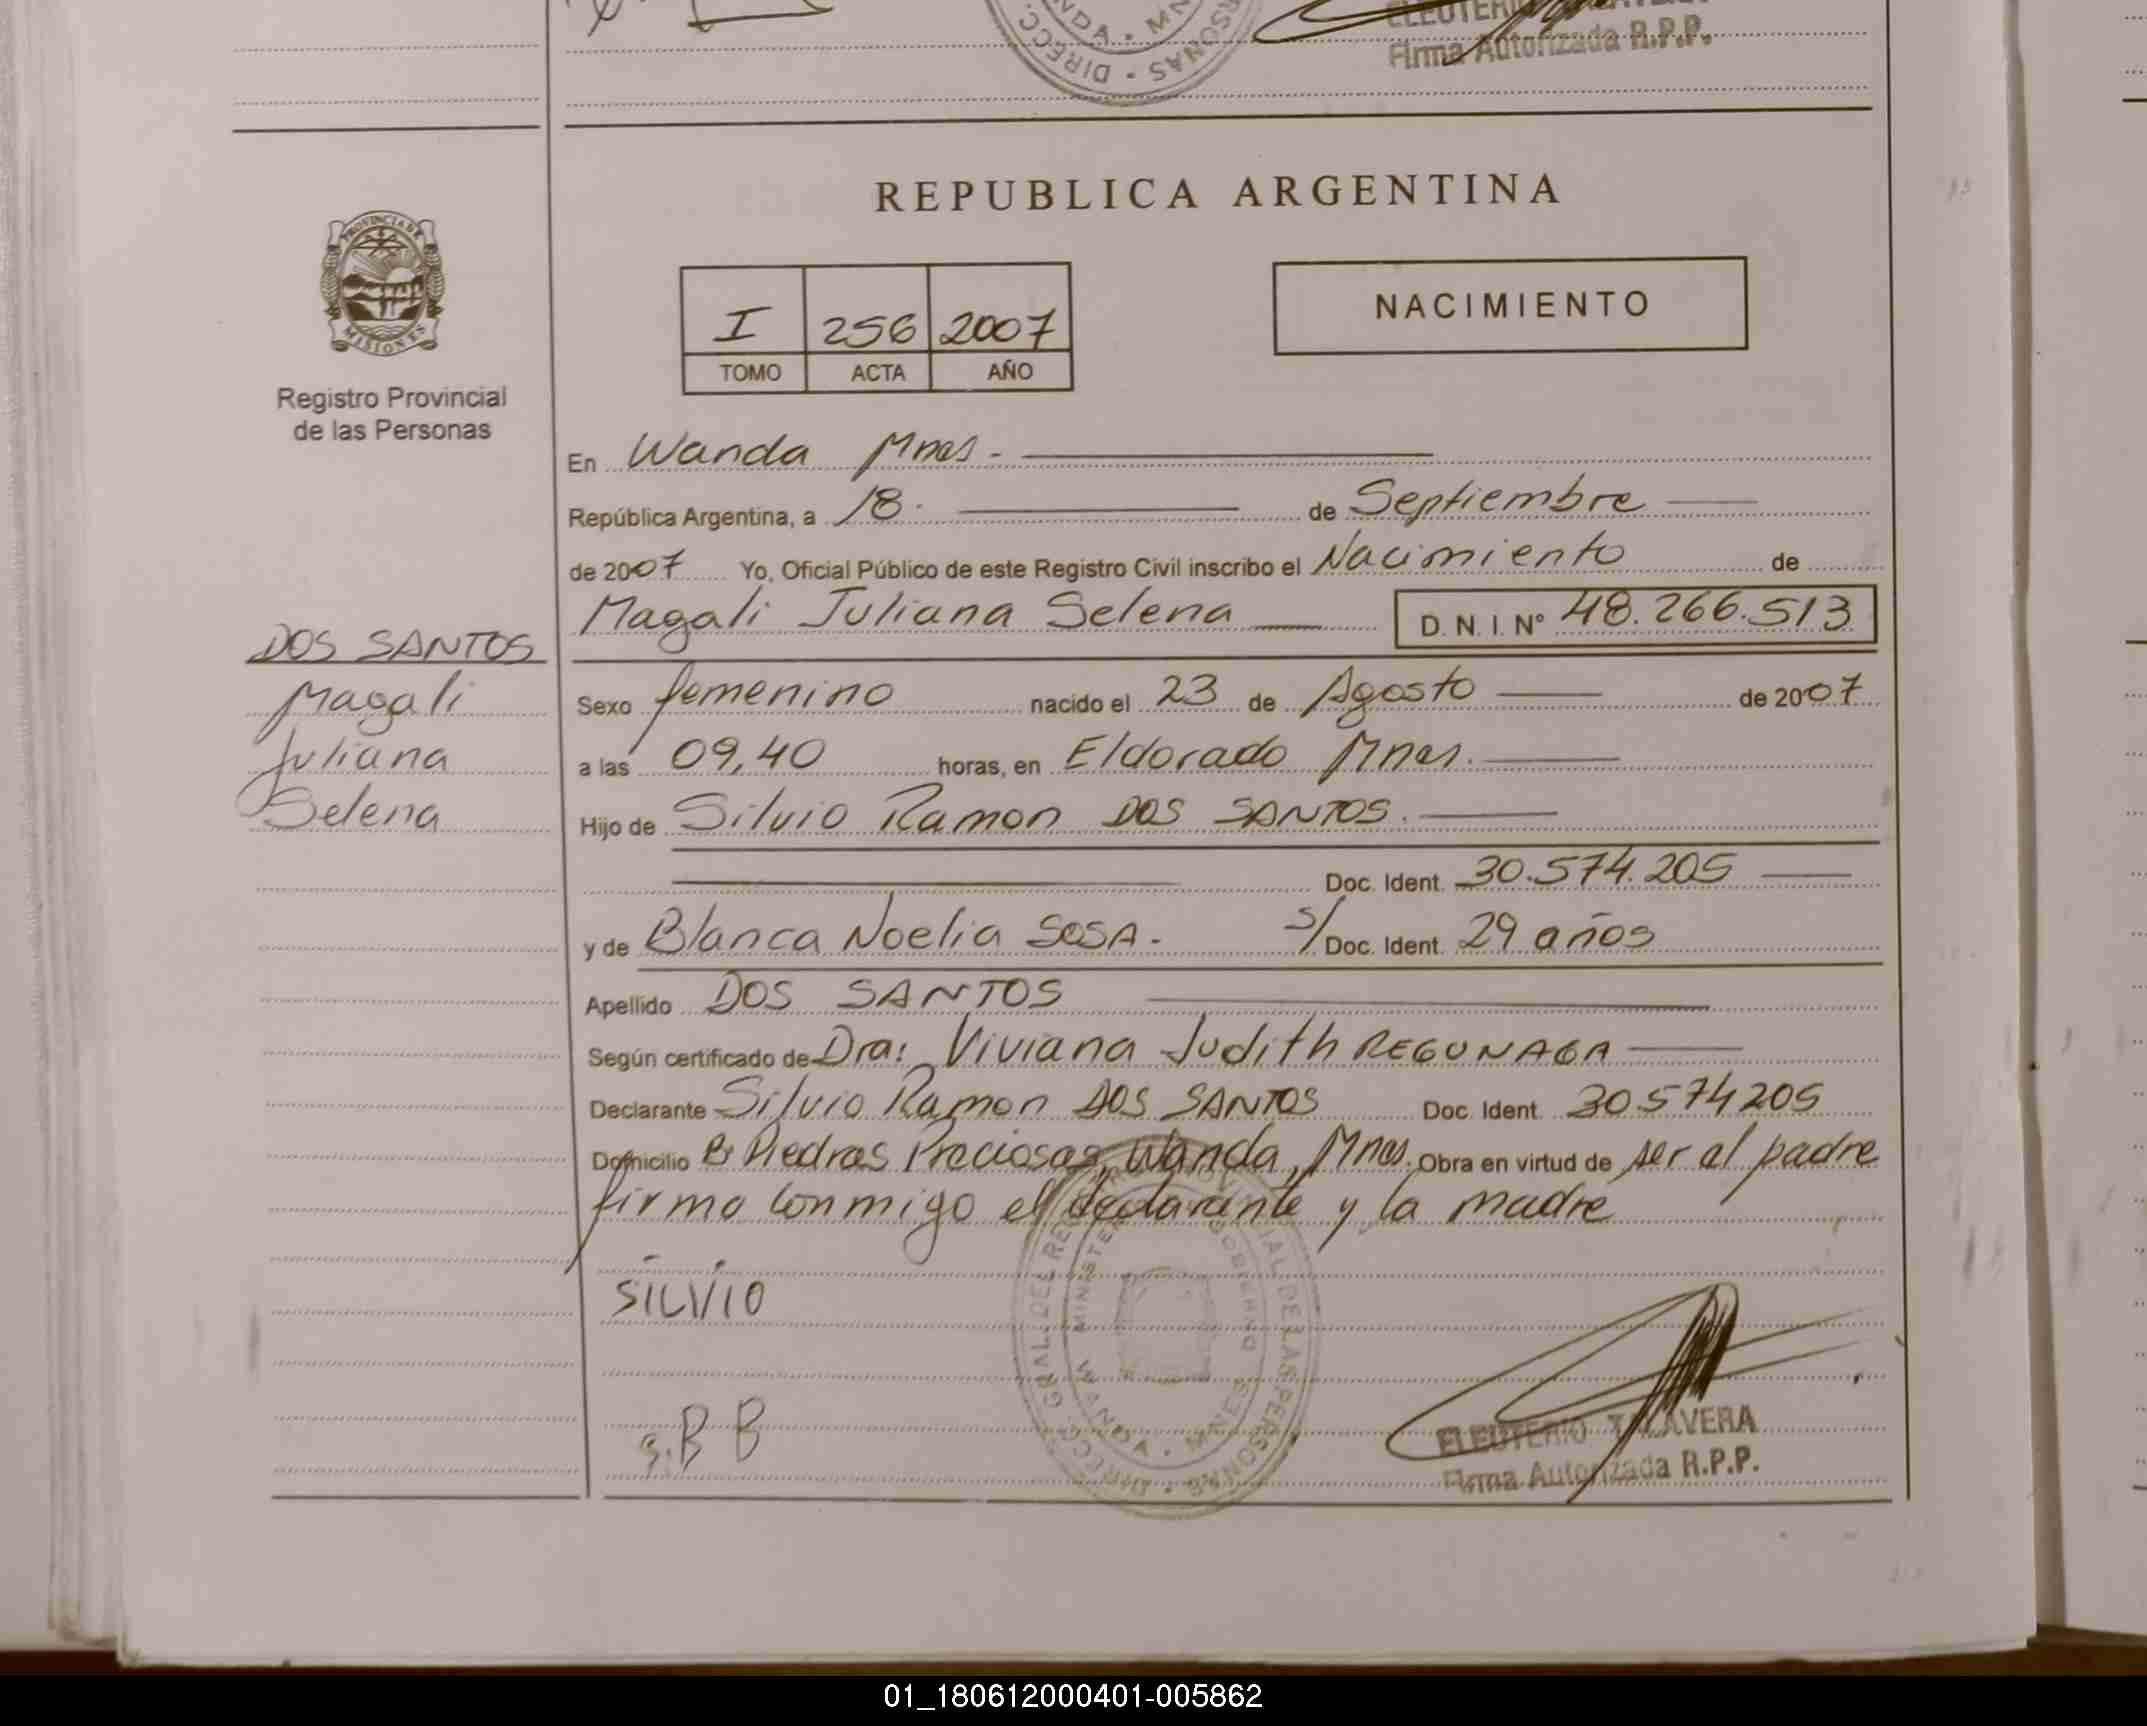 ELEUTERIO
Firma Autorizada R.P.P.
REPUBLICA ARGENTINA
PROVINCIA DE
MISIONES
Registro Provincial
de las Personas
I 256 2007
TOMO ACTA AÑO
NACIMIENTO
En Wanda Mnes.
República Argentina, a 18. de Septiembre
de 2007 Yo, Oficial Público de este Registro Civil inscribo el Nacimiento de
Magali Juliana Selena D. N. I. Nº 48.266.513
DOS SANTOS
Magali
Juliana
Selena
Sexo femenino nacido el 23 de Agosto de 2007
a las 09,40 horas, en Eldorado Mnes.
Hijo de Silvio Ramon DOS SANTOS.
Doc. Ident. 30.574.205
y de Blanca Noelia SOSA. s/ Doc. Ident. 29 años
Apellido DOS SANTOS
Según certificado de Dra: Viviana Judith REGUNAGA
Declarante Silvio Ramon DOS SANTOS Doc. Ident. 30574205
Domicilio Bº Piedras Preciosas, Wanda, Mnes. Obra en virtud de ser el padre
firma conmigo el declarante y la madre
SILVIO
BB
ELEUTERIO TALAVERA
Firma Autorizada R.P.P.
01_180612000401-005862